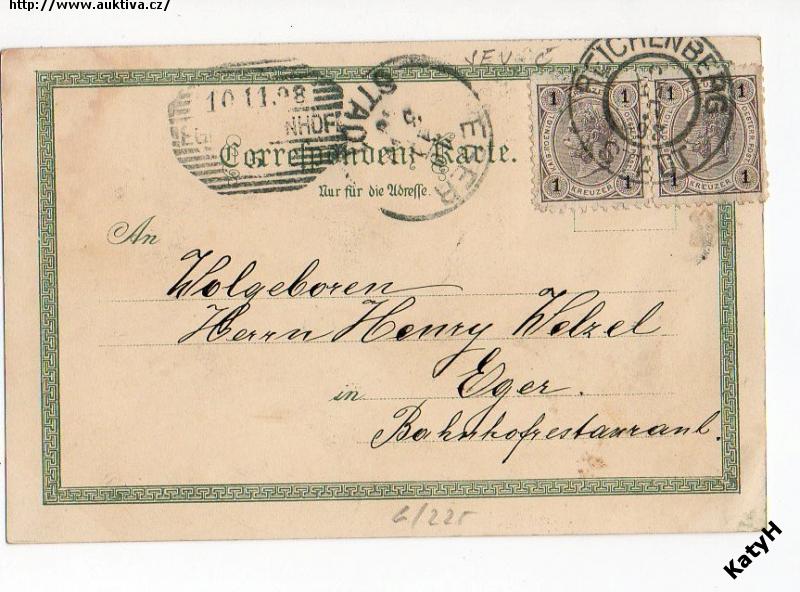 http://www.auktiva.cz/
10.11.98
STADT
EGER
REICHENBERG
1 1 1 1
1 KREUZER 1 1 KREUZER 1
Correspondenz-Karte.
Nur für die Adresse.
An
Wolgeboren
Herrn Henry Welzel
in Eger.
Bahnhofrestaurant.
6/225
KatyH